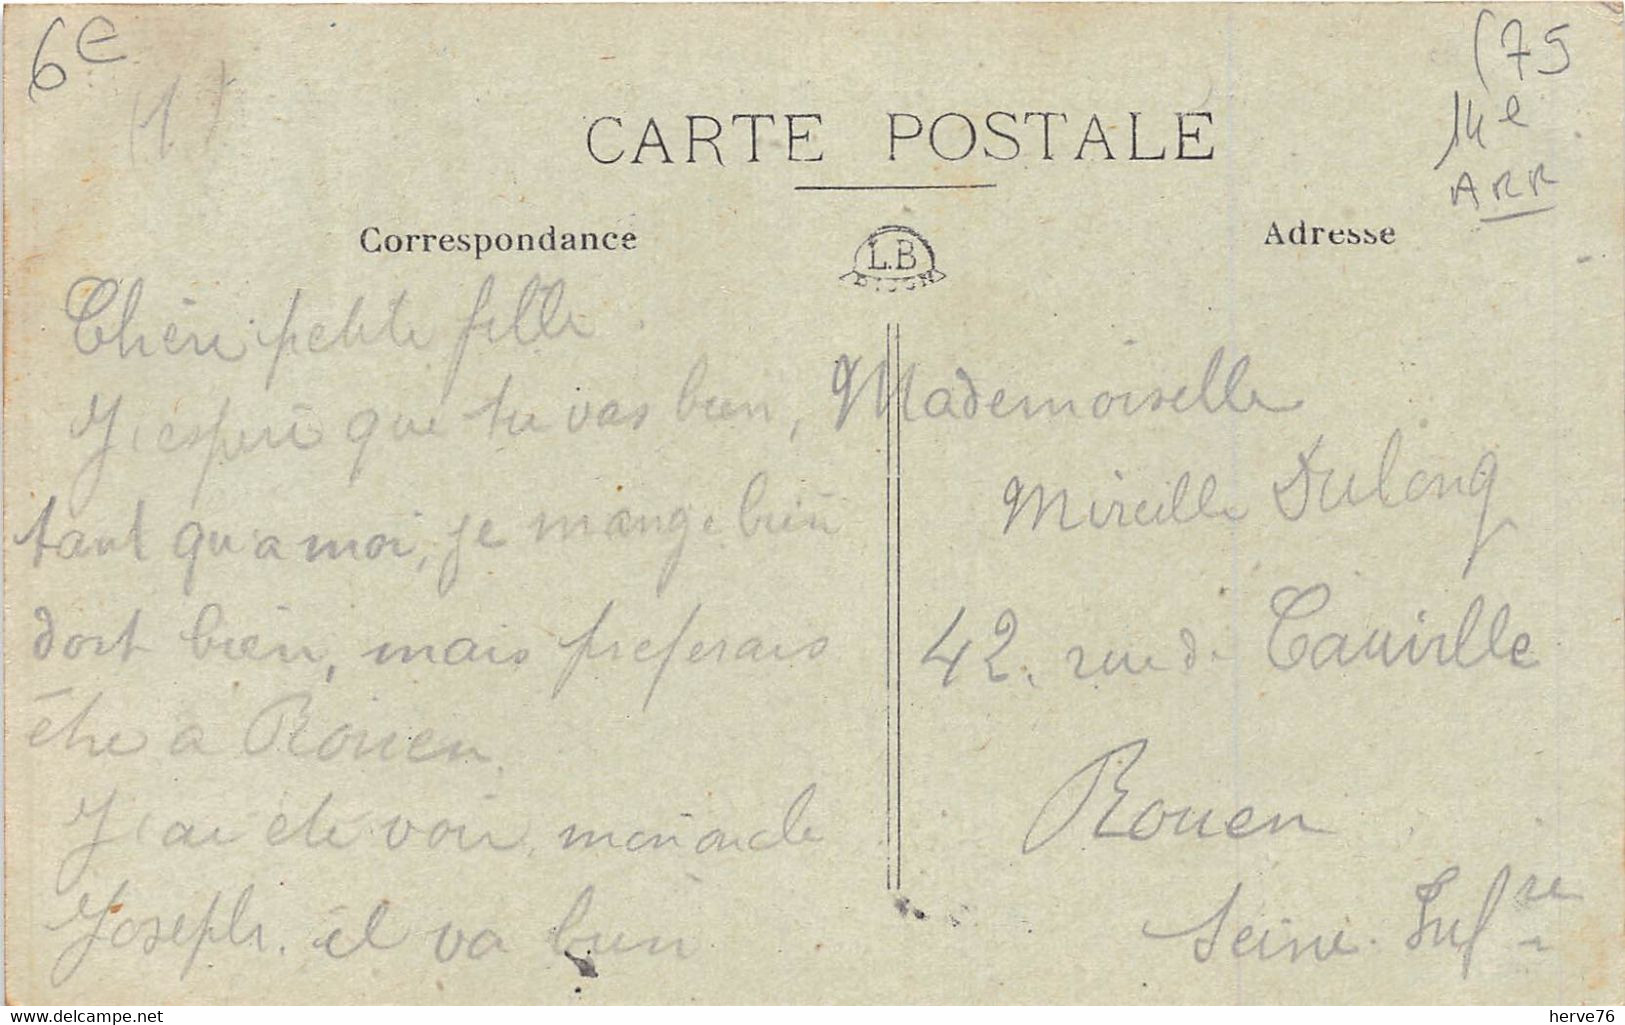 6e
(1)
(75
14e
ARR
CARTE POSTALE
Correspondance
Adresse
L.B
DIJON
Chère petite fille
J'espère que tu vas bien,
tant qu'a moi, je mange bien
dort bien, mais preferais
être a Rouen
J'ai été voir mon oncle
Joseph. il va bien
Mademoiselle
Mireille Dulong
42, rue de Tauville
Rouen
Seine Infre
www.delcampe.net
herve76